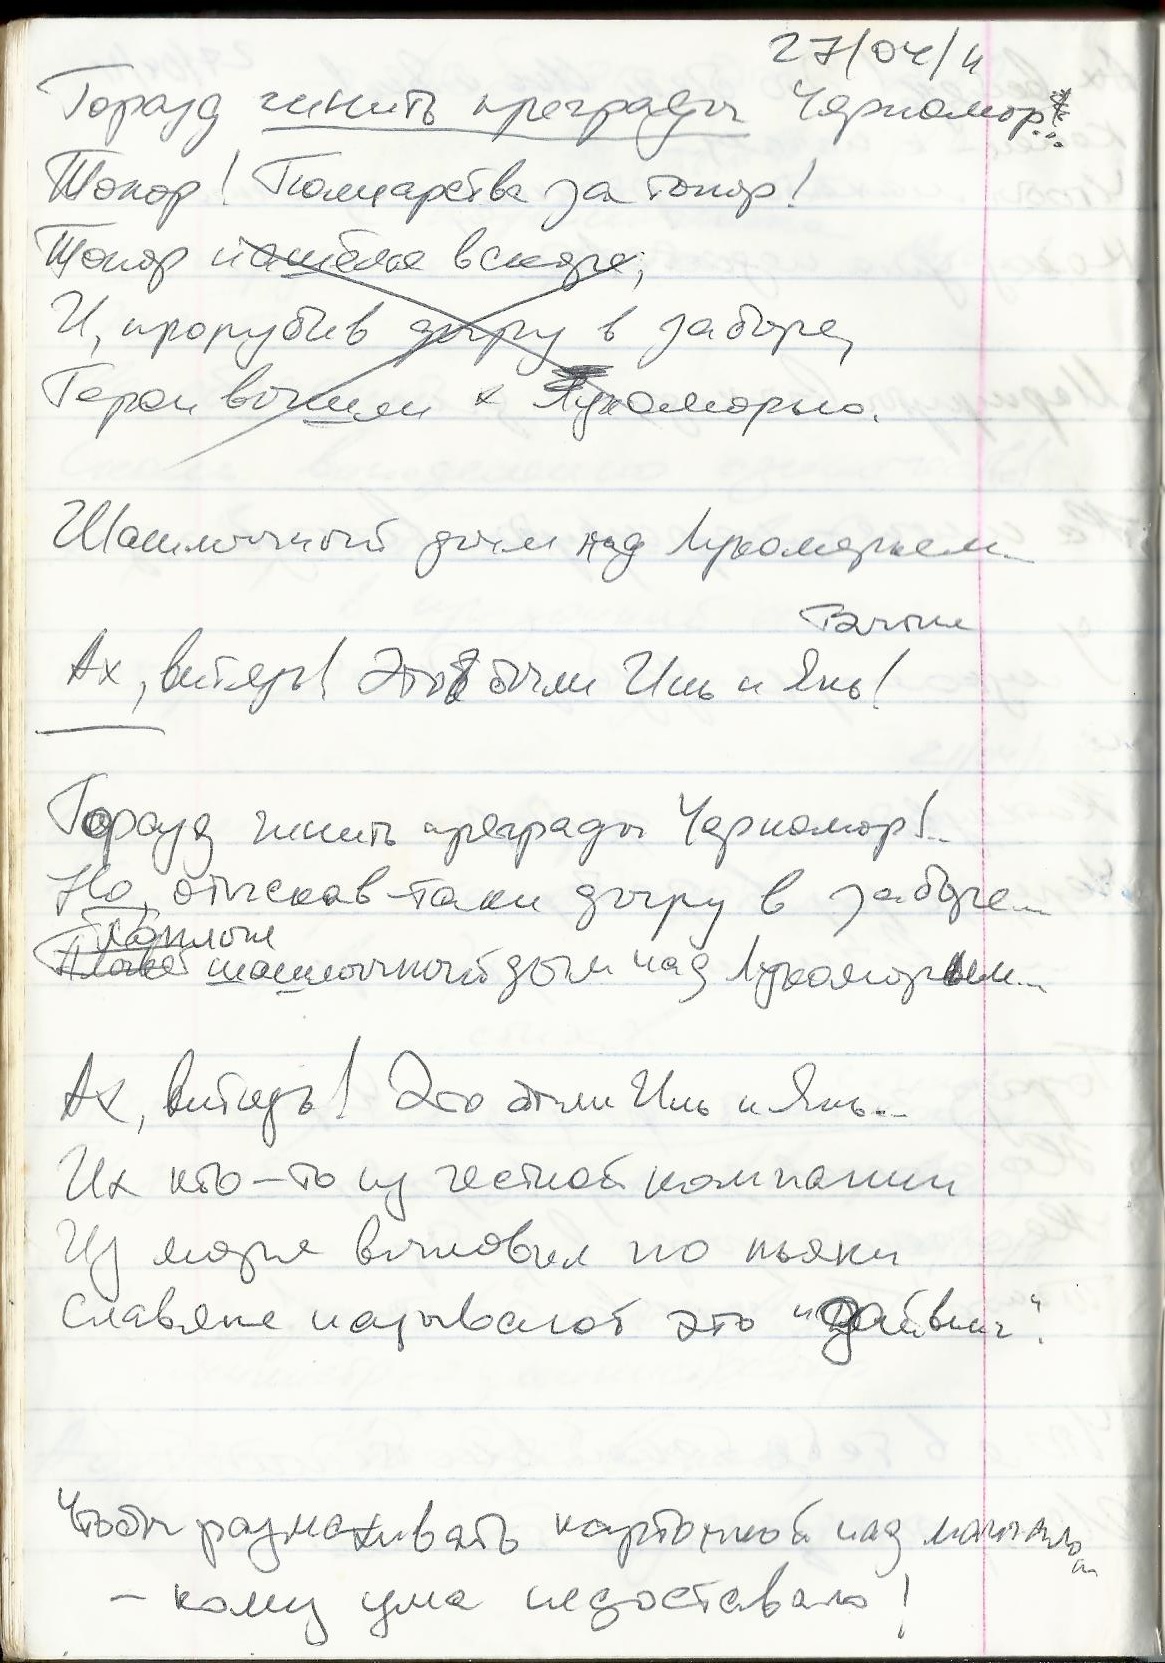 27/04/11
Горазд чинить преграды Черномор!..
Топор! Полцарства за топор!
Топор нашёлся вскоре;
И, прорубив дыру в заборе,
Герои вышли к Лукоморью.
Шашлычный дым над Лукоморьем...
Ах, витязь! Это были Инь и Янь!
Горазд чинить преграды Черномор!..
Но, отыскав-таки дыру в заборе...
Поплыл
шашлычный дым над Лукоморьем...
Ах, витязь! Это были Инь и Янь...
Их кто-то из честной компании
Из моря выловил по пьяни
Славяне называют это "Дайвинг".
Чтобы размахивать картонкой над мангалом
– кому ума недоставало!